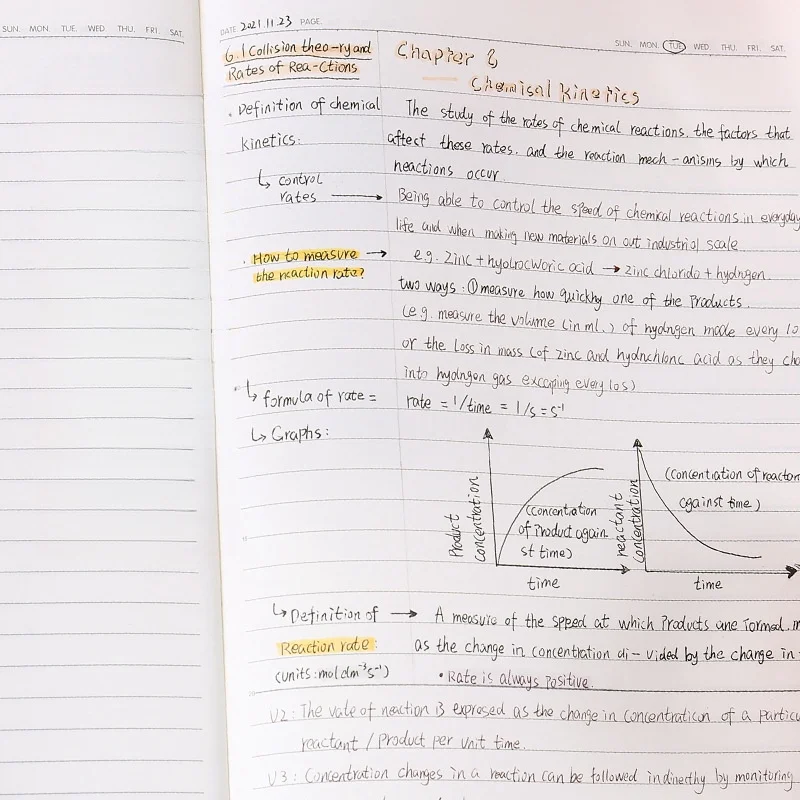 SUN. MON. TUE. WED. THU. FRI. SAT.
DATE 2021.11.23 PAGE.
SUN. MON. TUE WED. THU. FRI. SAT.
6.1 Collision theo-ry and
Rates of Rea-Ctions
Chapter 6
Chemisal kinetics
· Definition of chemical
kinetics:
The study of the rates of chemical reactions, the factors that
affect these rates, and the reaction mech-anisins by which
reactions occur.
↳ control
rates →
Being able to control the speed of chemical reactions in everyday
life and when making new materials on out industrial scale
· How to measure →
the reaction rate?
e.g. Zinc + hydrocworic acid → zinc chlorido + hydrogen.
two ways: ① measure how quickhy one of the Products.
(e.g. measure the volume (in ml.) of hydrogen made every 10
or the Loss in mass (of zinc and hydrochlonc acid as they cha
into hydrogen gas excaping every 10s)
↳ formula of rate =
rate = 1/time = 1/s = s⁻¹
↳ Graphs:
Product
concentration
(concentiation
of Product again
st time)
time
reactant
concentration
(Concentiation of reactan
against time)
time
↳ Definition of →
Reaction rate:
(units: mol dm⁻³s⁻¹)
A measure of the spped at which Products are formed. m
as the change in concentration di-vided by the change in t
• Rate is always positive.
V2: The vate of reaction is expresed as the change in concentration of a particu
reactant / Product per unit time.
V3: Concentration changes in a reaction can be followed indirecthy by monitoring